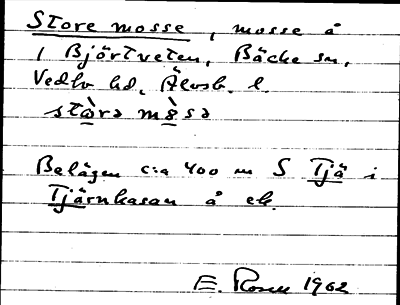 Store mosse, mosse å
1 Björtveten, Bäcke sn,
Vedbo hd, Älvsb. l.
stòrə mòsə
Belägen c:a 400 m S Tjä i
Tjärnkasan å ek.
E. Rosell 1962